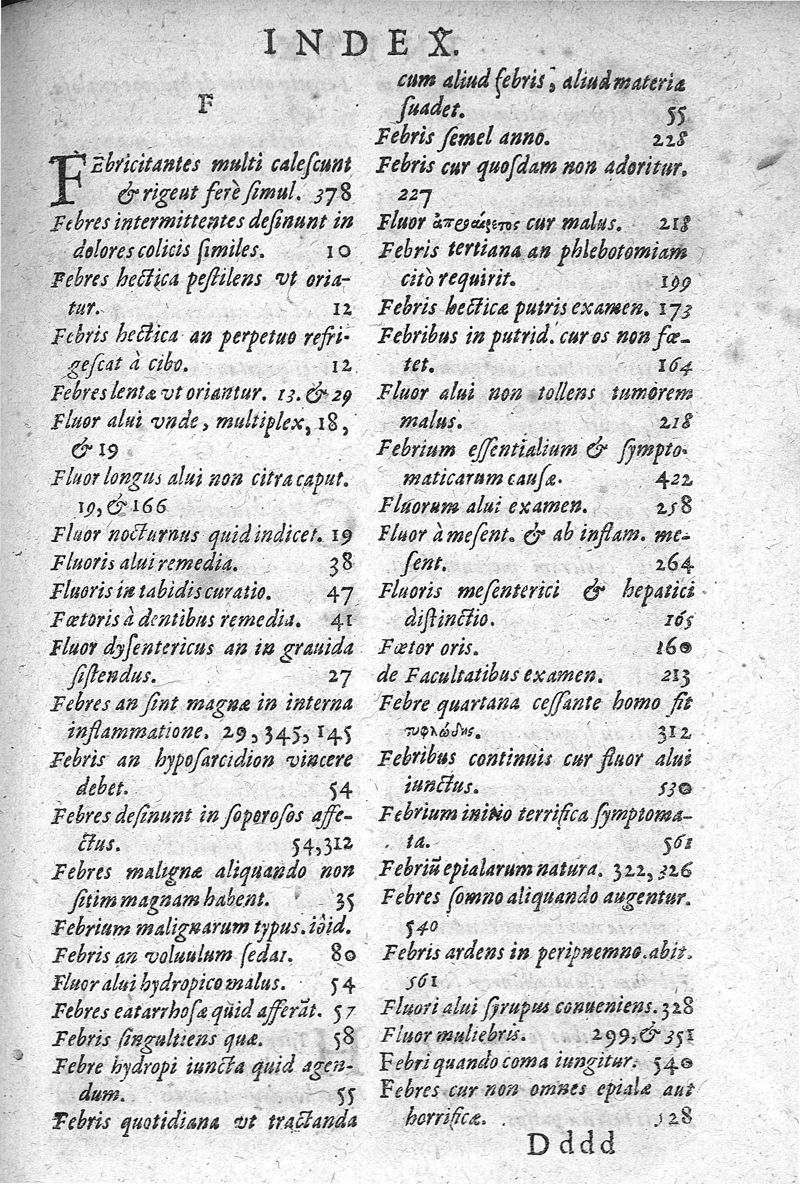 INDEX.
F
FEbricitantes multi caleſcunt
& rigent ferè ſimul. 378
Febres intermittentes deſinunt in
dolores colicis ſimiles. 10
Febres hectica peſtilens vt oria-
tur. 12
Febris hectica an perpetuo refri-
geſcat à cibo. 12
Febres lentæ vt oriantur. 13. & 29
Fluor alui vnde, multiplex, 18,
& 19
Fluor longus alui non citra caput.
19, & 166
Fluor nocturnus quid indicet. 19
Fluoris alui remedia. 38
Fluoris in tabidis curatio. 47
Fœtoris à dentibus remedia. 41
Fluor dyſentericus an in grauida
ſiſtendus. 27
Febres an ſint magnæ in interna
inflammatione. 29, 345, 145
Febris an hypoſarcidion vincere
debet. 54
Febres deſinunt in ſoporoſos affe-
ctus. 54, 312
Febres malignæ aliquando non
ſitim magnam habent. 35
Febrium malignarum typus. ibid.
Febris an voluulum ſedat. 80
Fluor alui hydropico malus. 54
Febres eatarrhoſæ quid afferãt. 57
Febris ſingultiens quæ. 58
Febre hydropi iuncta quid agen-
dum. 55
Febris quotidiana vt tractanda
cum aliud febris, aliud materiæ
ſuadet. 55
Febris ſemel anno. 228
Febris cur quoſdam non adoritur.
227
Fluor cur malus. 218
Febris tertiana an phlebotomiam
citò requirit. 199
Febris hecticæ putris examen. 173
Febribus in putrid. cur os non fœ-
tet. 164
Fluor alui non tollens tumorem
malus. 218
Febrium eſſentialium & ſympto-
maticarum cauſæ. 422
Fluorum alui examen. 258
Fluor à meſent. & ab inflam. me-
ſent. 264
Fluoris meſenterici & hepatici
diſtinctio. 165
Fœtor oris. 160
de Facultatibus examen. 213
Febre quartana ceſſante homo fit
τυφλώδης. 312
Febribus continuis cur fluor alui
iunctus. 530
Febrium initio terrifica ſymptoma-
ta. 561
Febriũ epialarum natura. 322, 326
Febres ſomno aliquando augentur.
540
Febris ardens in peripnemno. abit.
561
Fluori alui ſyrupus conueniens. 328
Fluor muliebris. 299, & 351
Febri quando coma iungitur. 540
Febres cur non omnes epialæ aut
horrificæ. 328
Dddd